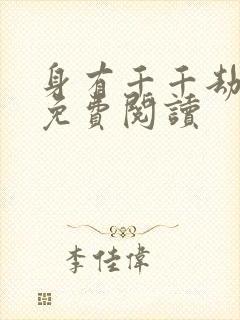 身有千千劫
免費閱讀
李佳偉